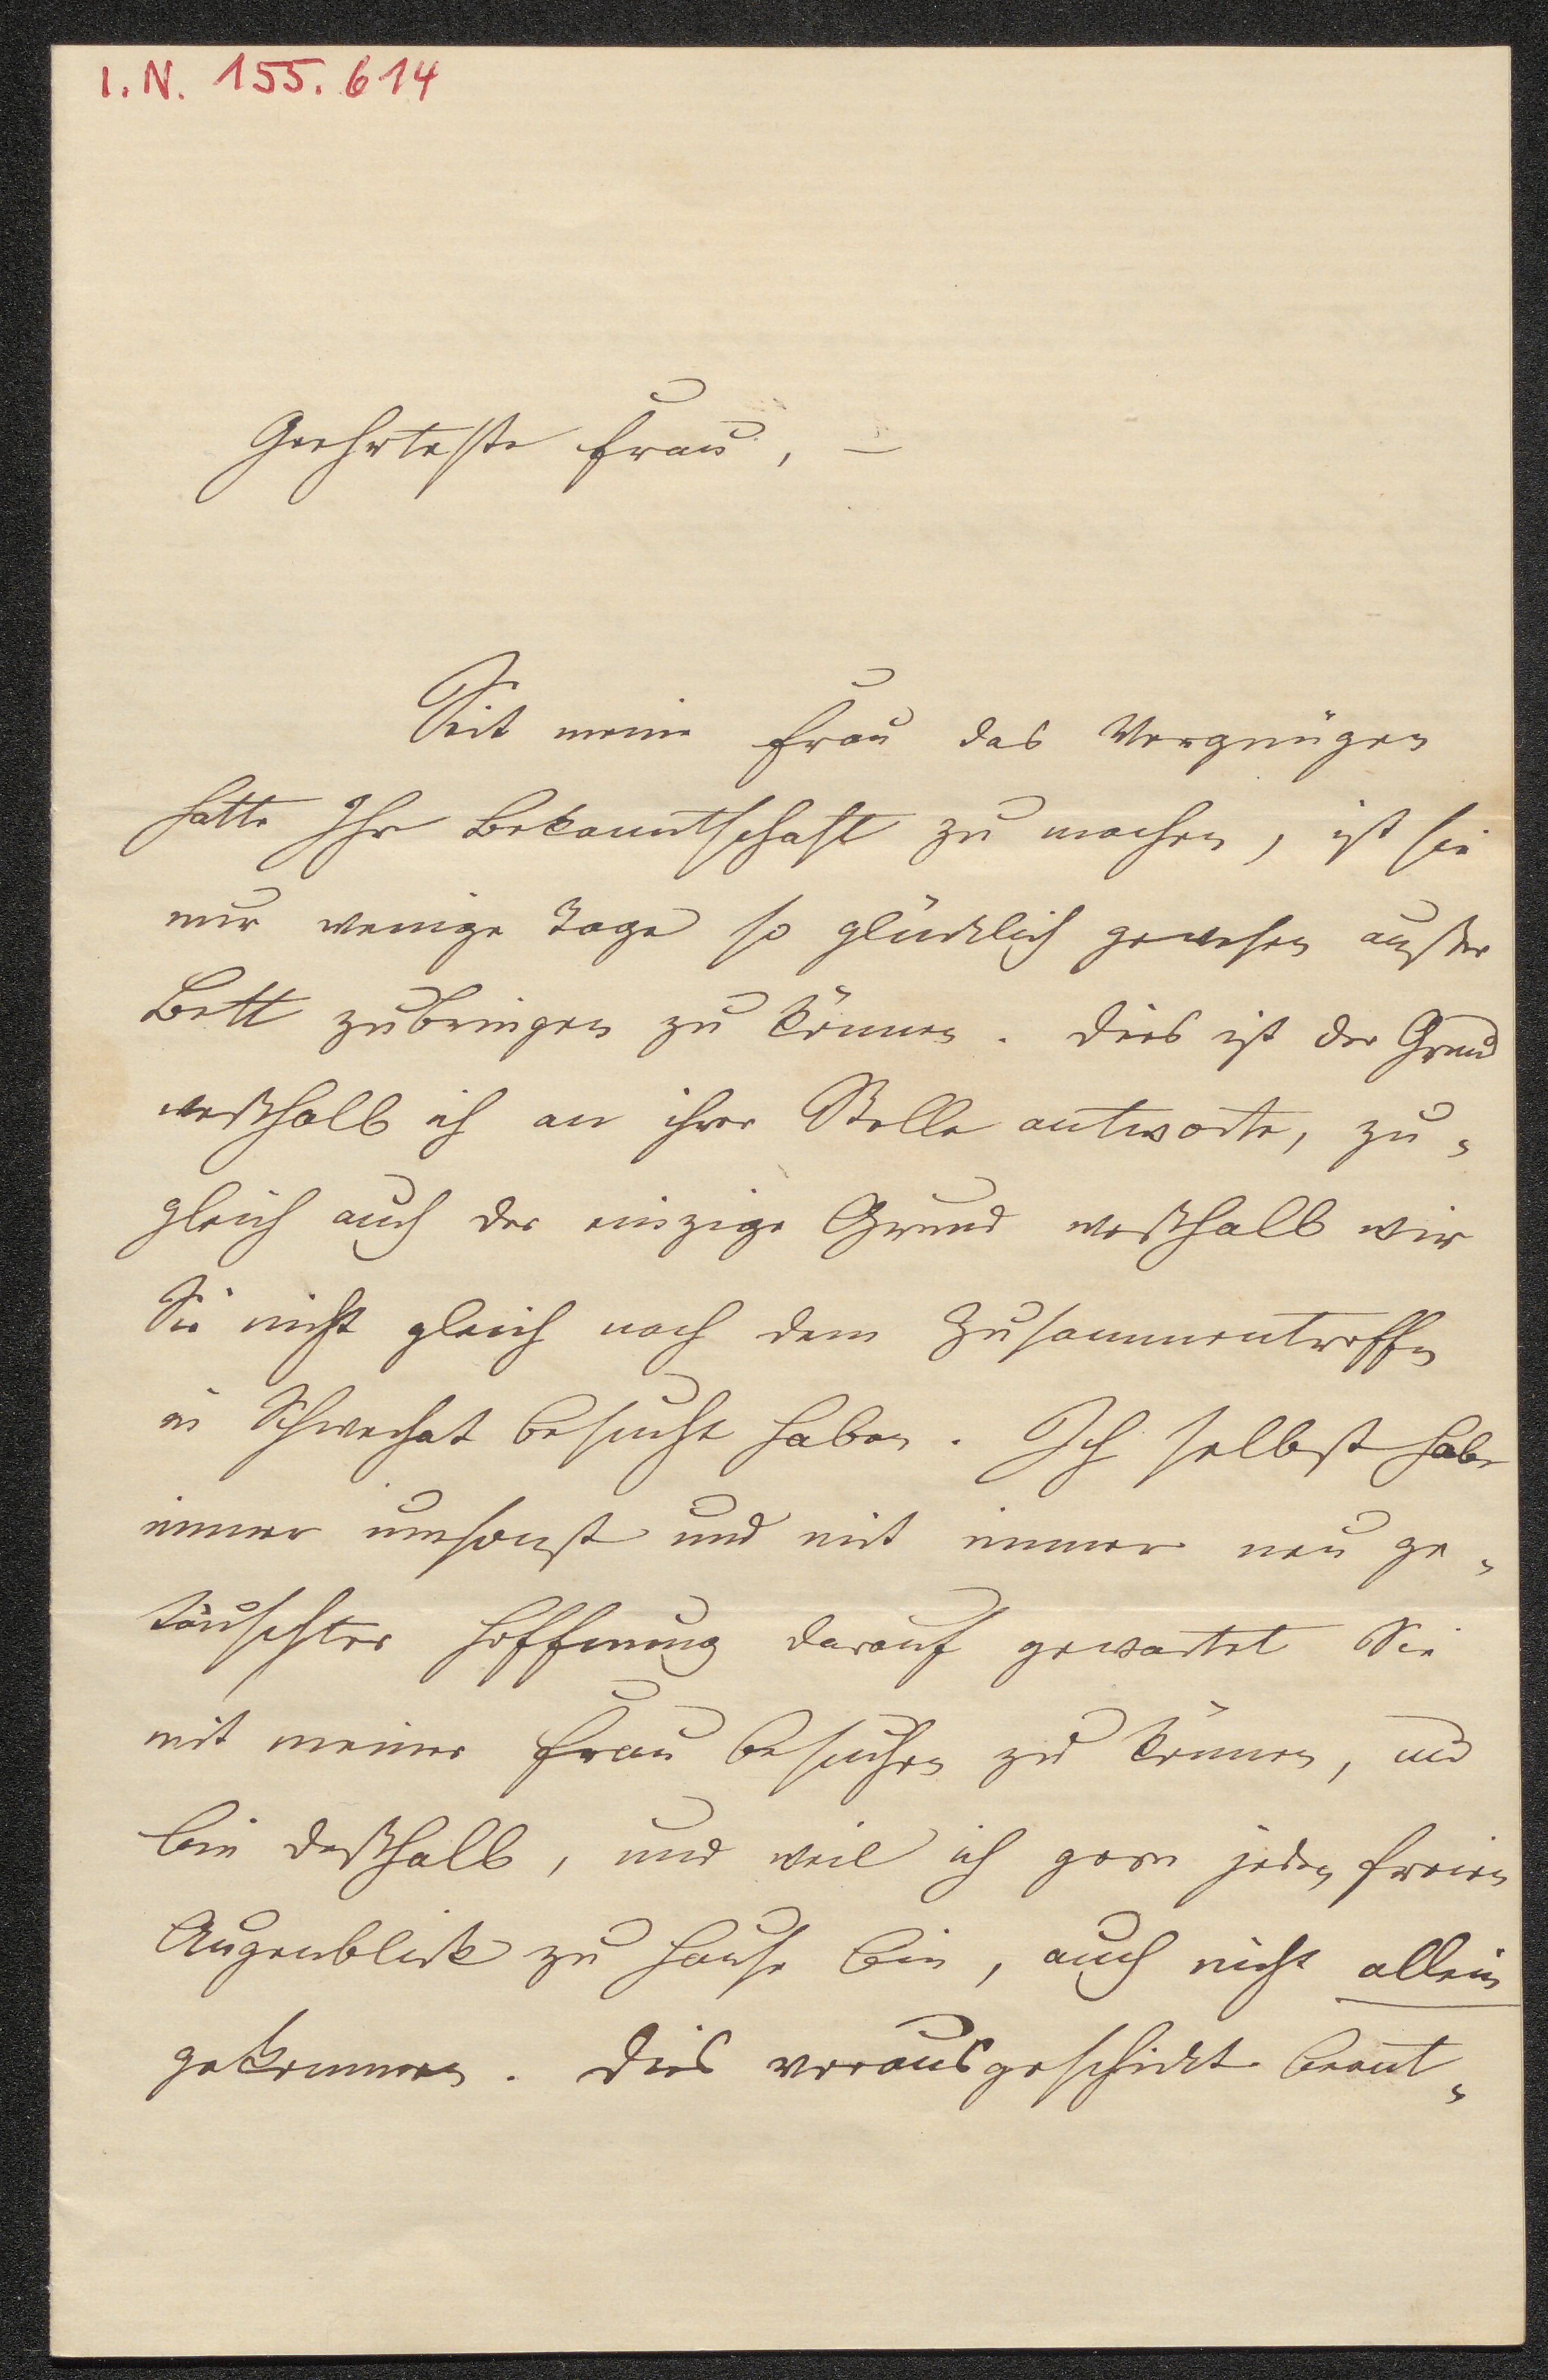 I.N. 155.614
Geehrteste Frau, –
Seit meine Frau das Vergnügen
hatte Ihre Bekanntschaft zu machen, ist sie
nur wenige Tage so glücklich gewesen außer
Bett zubringen zu können. Dies ist der Grund
weßhalb ich an ihrer Stelle antworte, zu-
gleich auch der einzige Grund weßhalb wir
Sie nicht gleich nach dem Zusammentreffen
in Schwechat besucht haben. Ich selbst habe
immer umsonst und mit immer neu ge-
täuschter Hoffnung darauf gewartet Sie
mit meiner Frau besuchen zu können, und
bin deßhalb, und weil ich gern jeden freien
Augenblick zu Hause bin, auch nicht allein
gekommen. Dies vorausgeschickt beant-